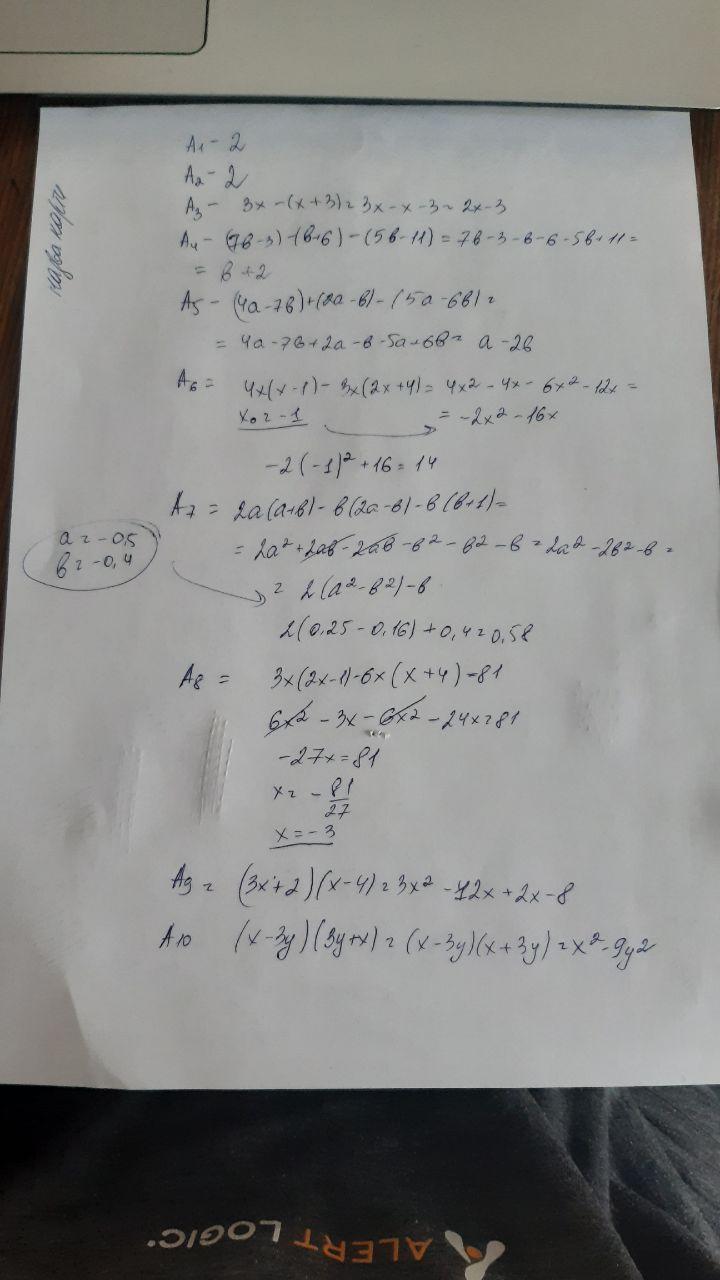 A1 - 2
A2 - 2
A3 - 3x - (x + 3) = 3x - x - 3 = 2x - 3
A4 - (7в - 3) - (в + 6) - (5в - 11) = 7в - 3 - в - 6 - 5в + 11 =
= в + 2
A5 - (4a - 7в) + (2a - в) - (5a - 6в) =
= 4a - 7в + 2a - в - 5a + 6в = a - 2в
A6 = 4x(x - 1) - 3x(2x + 4) = 4x² - 4x - 6x² - 12x =
x₀ = -1 = -2x² - 16x
-2(-1)² + 16 = 14
A7 = 2a(a + в) - в(2a - в) - в(в + 1) =
a = -0,5
в = -0,4
= 2a² + 2aв - 2aв - в² - в² - в = 2a² - 2в² - в =
= 2(a² - в²) - в
2(0,25 - 0,16) + 0,4 = 0,58
A8 = 3x(2x - 1) - 6x(x + 4) = 81
6x² - 3x - 6x² - 24x = 81
-27x = 81
x = - 81/27
x = -3
A9 = (3x + 2)(x - 4) = 3x² - 12x + 2x - 8
A10 (x - 3y)(3y + x) = (x - 3y)(x + 3y) = x² - 9y²
ALERT LOGIC.